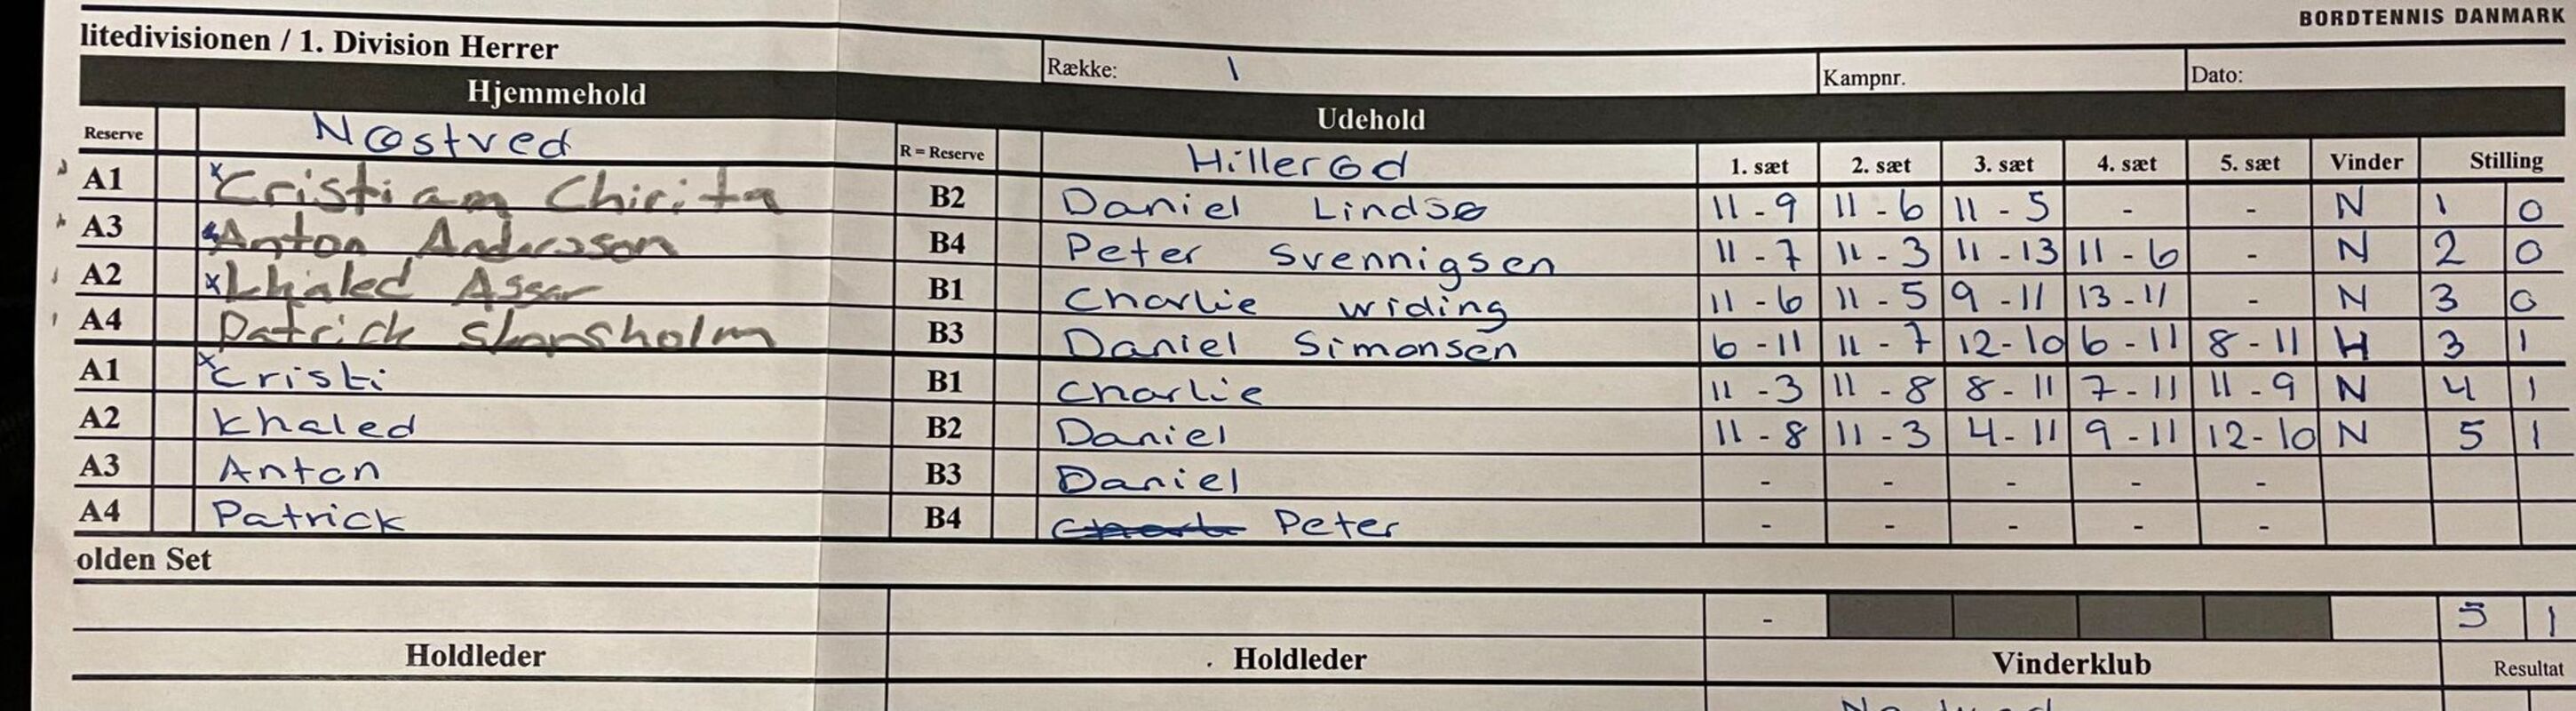 BORDTENNIS DANMARK
litedivisionen / 1. Division Herrer Række: 1 Kampnr. Dato:
Hjemmehold Udehold
Reserve Næstved R = Reserve Hillerød 1. sæt 2. sæt 3. sæt 4. sæt 5. sæt Vinder Stilling
A1 x Cristian Chirita B2 Daniel Lindsø 11 - 9 11 - 6 11 - 5 - - N 1 0
A3 Anton Andersson B4 Peter Svennigsen 11 - 7 11 - 3 11 - 13 11 - 6 - N 2 0
A2 x Khaled Assar B1 Charlie widing 11 - 6 11 - 5 9 - 11 13 - 11 - N 3 0
A4 Patrick B3 Daniel Simonsen 6 - 11 11 - 7 12 - 10 6 - 11 8 - 11 H 3 1
A1 x Cristi B1 Charlie 11 - 3 11 - 8 8 - 11 7 - 11 11 - 9 N 4 1
A2 Khaled B2 Daniel 11 - 8 11 - 3 4 - 11 9 - 11 12 - 10 N 5 1
A3 Anton B3 Daniel - - - - -
A4 Patrick B4 Peter - - - - -
olden Set
- 5 1
Holdleder Holdleder Vinderklub Resultat